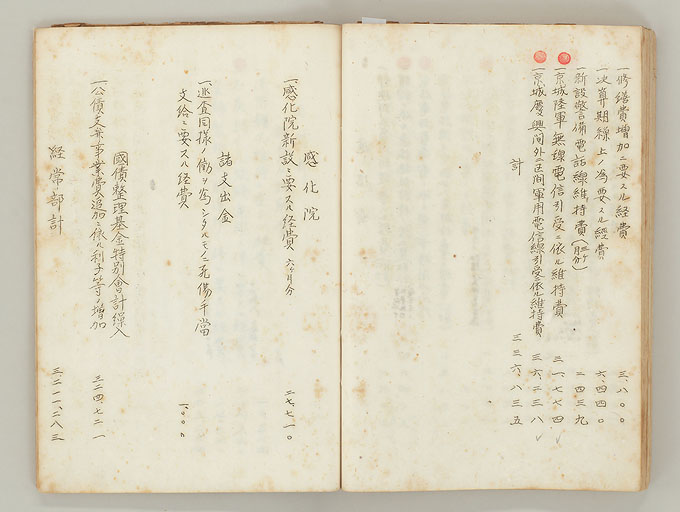 一、修繕費増加ニ要スル経費 三、八〇〇
一、決算期繰上ノ為要スル経費 六、四四〇
一、新設警備電話線維持費(三ヶ月分) 二四三九
一、京城陸軍無線電信引受ニ依ル維持費 三一、七七四
一、京城慶興間外二区間軍用電信線引受ニ依ル維持費 三六、二三八
計 三三六、八三五
感化院
一、感化院新設ニ要スル経費 六ヶ月分 二七、七一〇
諸支出金
一、巡査同様ノ働ヲ為シタルモノニ死傷手当
支給ニ要スル経費 一、〇〇〇
國債整理基金特別會計繰入
一、公債支弁事業費追加ニ依ル利子等ノ増加 三二四、七二一
経常部計 三、二一一、二八三